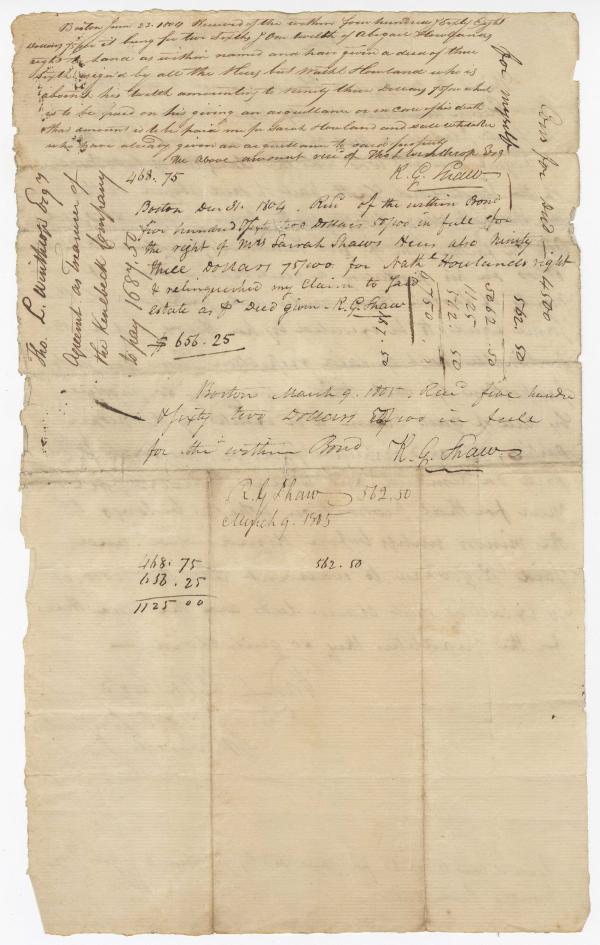 Boston June 22. 1804 Received of the within four hundred & Sixty Eight
Dollars 75/100 it being for two Sixths of One twelth of Abigail Howlands
right to land as within named and have given a deed of three
Sixths sign'd by all the Heirs but Nathl Howland who is
absent his twelth amounting to Ninety three Dollars 75/100 which
is to be paid on his giving an acquittance or in case of his death
that amount is to be paid me for Sarah Howland and
who have already given an acquittance to said property
the above amount recd of Thos L Winthrop Esq
468.75
R. G. Shaw
for myself
Boston Decr 31. 1804. Recd of the within Bond
five hundred & sixty two Dollars 50/100 in full for
the right of Mrs Sarah Shaws Heirs also Ninety
three Dollars 75/100 for Nathl Howlands right
& relinquished my claim to said
estate as pr Deed given - R. G. Shaw
$ 656.25
Tho. L. Winthrop Esqr
Agreemt as Treasurer of
the Kenebeck Company
to pay 1687.50
4500
562. 50
5062. 50
1125
562. 50
6750
1687. 50
Boston March 9. 1805. Recd five hundre
& sixty two Dollars 50/100 in full
for the within Bond R. G. Shaw
R. G Shaw 562.50
March 9. 1805
468.75
656.25
1125 00
562.50